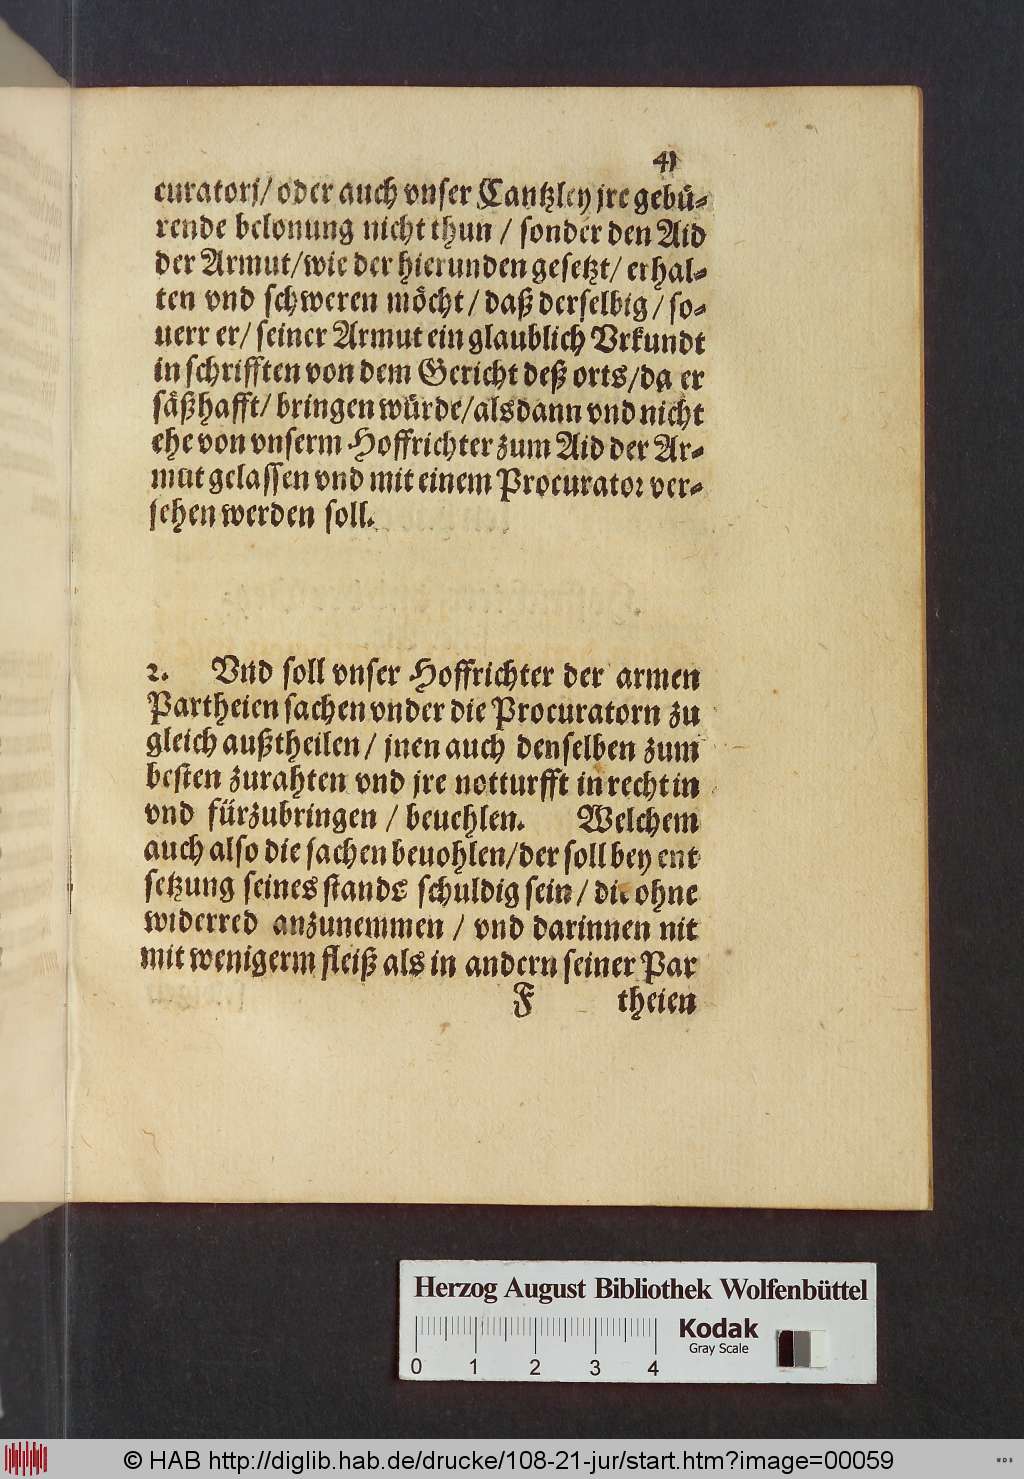 41
curatorj/ oder auch vnser Cantzley jre gebü-
rende belonung nicht thun / sonder den Aid
der Armut/wie der hierunden gesetzt/ erhal-
ten vnd schweren möcht / daß derselbig / so-
uerr er/ seiner Armut ein glaublich Vrkundt
in schrifften von dem Gericht deß orts/da er
säßhafft/ bringen würde/alsdann vnd nicht
ehe von vnserm Hoffrichter zum Aid der Ar-
mut gelassen vnd mit einem Procurator ver-
sehen werden soll.
2. Vnd soll vnser Hoffrichter der armen
Partheien sachen vnder die Procuratorn zu
gleich außtheilen / jnen auch denselben zum
besten zurahten vnd jre notturfft in recht in
vnd fürzubringen / beuehlen. Welchem
auch also die sachen beuohlen/der soll bey ent
setzung seines stands schuldig sein / die ohne
widerred anzunemmen / vnd darinnen nit
mit wenigerm fleiß als in andern seiner Par
F theien
Herzog August Bibliothek Wolfenbüttel
Kodak
Gray Scale
0 1 2 3 4
© HAB http://diglib.hab.de/drucke/108-21-jur/start.htm?image=00059